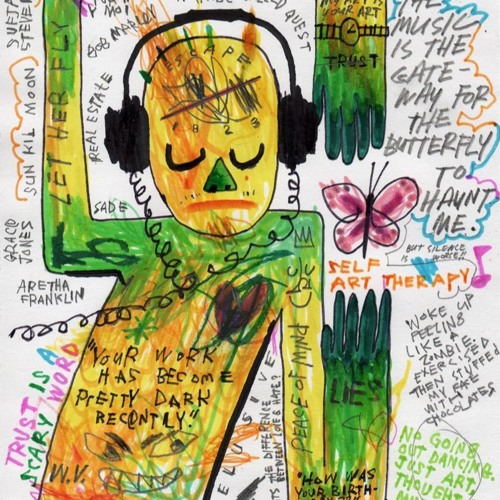 SUFJAN
STEVENS
BOB MARLEY
QUEST
SUN KIL MOON
LET HER FLY
REAL ESTATE
ESCAPE
YOUR ART
TRUST
THE
MUSIC
IS THE
GATE-
WAY FOR
THE
BUTTERFLY
TO
HAUNT
ME.
BUT SILENCE
IS WORSE!!
SADE
GRACE
JONES
ARETHA
FRANKLIN
SELF
ART THERAPY
TRUST IS A
SCARY WORD
"YOUR WORK
HAS BECOME
PRETTY DARK
RECENTLY."
W.V.
PEASE OF MIND
LIES
"HOW WAS
YOUR BIRTH-
WOKE UP
FEELING
LIKE A
ZOMBIE.
EXERCISED
THEN STUFFED
MY FACE
WITH
CHOCOLATES
NO GOING
OUT DANCING
JUST ART
THOUGH